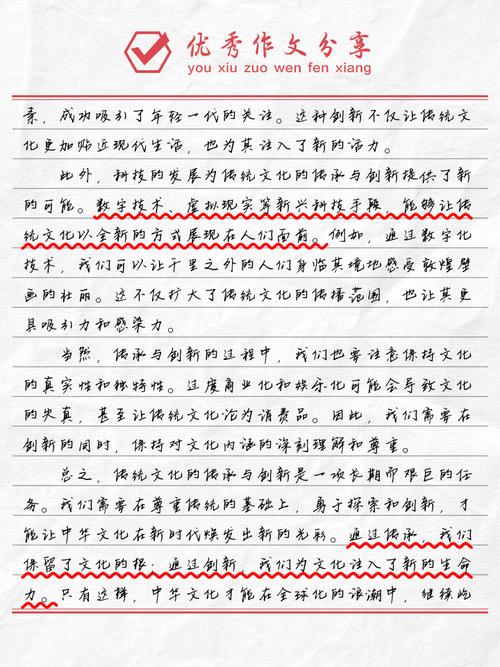 优秀作文分享
you xiu zuo wen fen xiang
素，成功吸引了年轻一代的关注。这种创新不仅让传统文
化更加贴近现代生活，也为其注入了新的活力。
此外，科技的发展为传统文化的传承与创新提供了新
的可能。数字技术、虚拟现实等新兴科技手段，能够让传
统文化以全新的方式展现在人们面前。例如，通过数字化
技术，我们可以让千里之外的人们身临其境地感受敦煌壁
画的壮丽。这不仅扩大了传统文化的传播范围，也让其更
具吸引力和感染力。
当然，传承与创新的过程中，我们也要注意保持文化
的真实性和独特性。过度商业化和娱乐化可能会导致文化
的失真，甚至让传统文化沦为消费品。因此，我们需要在
创新的同时，保持对文化内涵的深刻理解和尊重。
总之，传统文化的传承与创新是一项长期而艰巨的任
务。我们需要在尊重传统的基础上，勇于探索和创新，才
能让中华文化在新时代焕发出新的光彩。通过传承，我们
保留了文化的根；通过创新，我们为文化注入了新的生命
力。只有这样，中华文化才能在全球化的浪潮中，继续屹